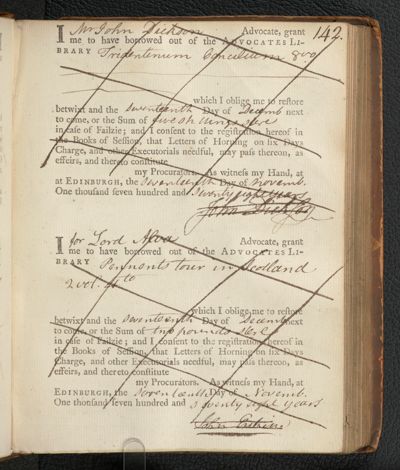 142.
I Mr John Dickson Advocate, grant
me to have borrowed out of the ADVOCATES LI-
BRARY Tridentinum Concilium 8vo
which I oblige me to restore
betwixt and the seventeenth Day of Decemb next
to come, or the Sum of
in case of Failzie; and I consent to the registration hereof in
the Books of Session, that Letters of Horning on six Days
Charge, and other Executorials needful, may pass thereon, as
effeirs, and thereto constitute
my Procurators. As witness my Hand, at
at EDINBURGH, the seventeenth Day of Novemb.
One thousand seven hundred and seventy eight years
John Dickson
I for Lord Alva Advocate, grant
me to have borrowed out of the ADVOCATES LI-
BRARY Pennants tour in Scotland
2 vol. 4to
which I oblige me to restore
betwixt and the seventeenth Day of Decemb next
to come, or the Sum of two pounds sterl.
in case of Failzie; and I consent to the registration hereof in
the Books of Session, that Letters of Horning on six Days
Charge, and other Executorials needful, may pass thereon, as
effeirs, and thereto constitute
my Procurators. As witness my Hand, at
EDINBURGH, the seventeenth Day of Novemb.
One thousand seven hundred and seventy eight years
John Erskine